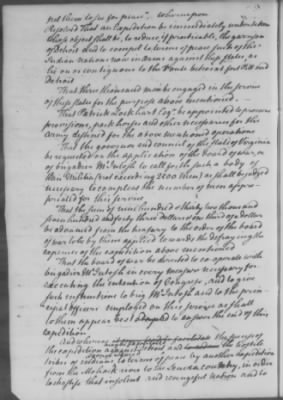 not them to sue for peace. Whereupon
Resolved That an expedition be immediately undertaken
whose object shall be, to reduce, if practicable, the garrison
of Detroit and to compel to terms of peace such of the
Indian nations now in arms against these states, as
lie on or contiguous to the route betwixt fort Pitt and
Detroit
That three thousand men be engaged in the service
of these states for the purpose above mentioned
That Patrick Lockhart Esqr. be appointed to procure
provisions, pack horses and other necessaries for the
Army destined for the above mentioned operations
That the governor and council of the state of Virginia
be requested on the application of the board of war, or
of brigadier McIntosh to call forth such a body of
their Militia (not exceeding 2500 thereof) as shall be judged
necessary to compleat the number of men appro-
priated for this service
That the sum of nine hundred & thirty two thousand
four hundred and forty three dollars and third of a dollar
be advanced from the treasury to the order of the board
of war to be by them applied towards the defraying the
expence of the expedition above mentioned
That the board of war be directed to co-operate with
brigadier McIntosh in every measure necessary for
executing the intention of Congress, and to give
such instructions to brigr McIntosh and to the prin-
cipal officers employed on this service as shall
to them appear best adapted to answer the end of this
expedition
And whereas the success of
the expedition against Detroit, and the hostile
tribes of indians to terms of peace by another expedition
from the Mohawk river to the Seneca country, in order
to chastise that insolent and revengeful nation and to